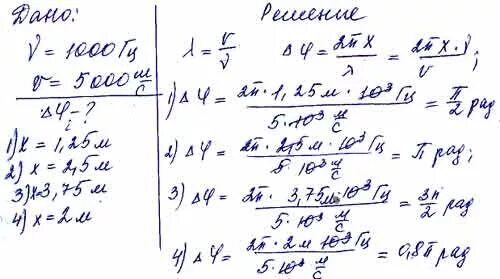 Дано:
ν = 1000 Гц
v = 5000 м/с
Δφ - ?
1) x = 1,25 м
2) x = 2,5 м
3) x = 3,75 м
4) x = 2 м
Решение
λ = v/ν Δφ = 2πx/λ = 2πx·ν/v ;
1) Δφ = 2π · 1,25 м · 10³ Гц / 5·10³ м/с = π/2 рад
2) Δφ = 2π · 2,5 м · 10³ Гц / 5·10³ м/с = π рад;
3) Δφ = 2π · 3,75 м · 10³ Гц / 5·10³ м/с = 3π/2 рад
4) Δφ = 2π · 2 м 10³ Гц / 5·10³ м/с = 0,8π рад